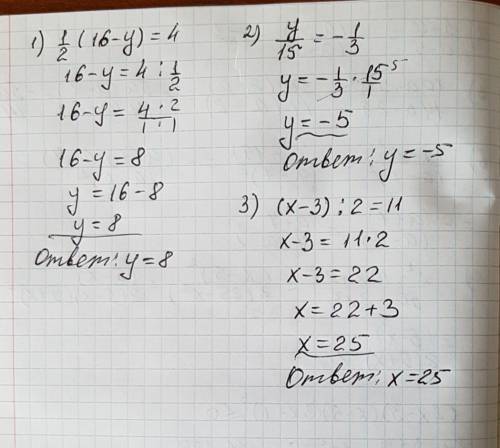 1) 1/2 (16-y) = 4
16-y = 4 : 1/2
16-y = 4·2/1·1
16-y = 8
y = 16-8
y = 8
Ответ: y = 8
2) y/15 = -1/3
y = -1/3 · 15⁵/1
y = -5
Ответ: y = -5
3) (x-3) : 2 = 11
x-3 = 11·2
x-3 = 22
x = 22+3
x = 25
Ответ: x = 25